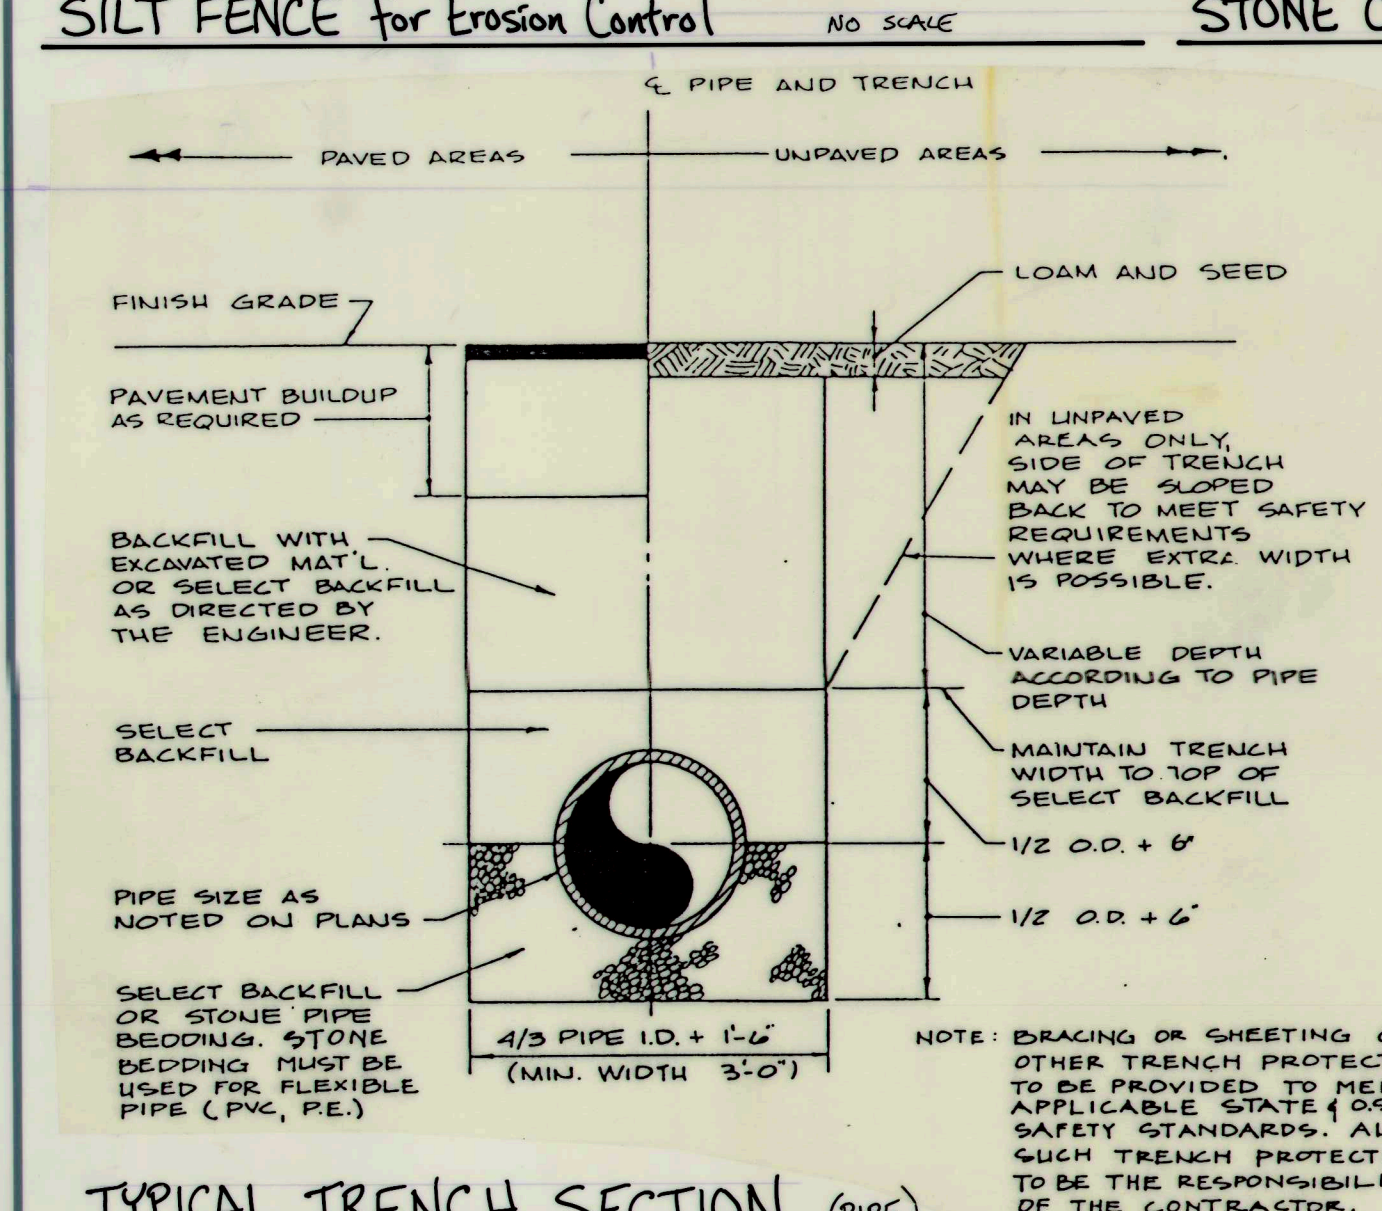 SILT FENCE for Erosion Control NO SCALE
STONE
℄ PIPE AND TRENCH
PAVED AREAS
UNPAVED AREAS
LOAM AND SEED
FINISH GRADE
PAVEMENT BUILDUP
AS REQUIRED
IN UNPAVED
AREAS ONLY,
SIDE OF TRENCH
MAY BE SLOPED
BACK TO MEET SAFETY
REQUIREMENTS
WHERE EXTRA WIDTH
IS POSSIBLE.
BACKFILL WITH
EXCAVATED MAT'L.
OR SELECT BACKFILL
AS DIRECTED BY
THE ENGINEER.
VARIABLE DEPTH
ACCORDING TO PIPE
DEPTH
SELECT
BACKFILL
MAINTAIN TRENCH
WIDTH TO TOP OF
SELECT BACKFILL
1/2 O.D. + 6"
PIPE SIZE AS
NOTED ON PLANS
1/2 O.D. + 6"
SELECT BACKFILL
OR STONE PIPE
BEDDING. STONE
BEDDING MUST BE
USED FOR FLEXIBLE
PIPE (PVC, P.E.)
4/3 PIPE I.D. + 1'-6"
(MIN. WIDTH 3'-0")
NOTE: BRACING OR SHEETING
OTHER TRENCH PROTECT
TO BE PROVIDED TO
APPLICABLE STATE &
SAFETY STANDARDS.
SUCH TRENCH PROTECT
TO BE THE RESPONSIBIL
OF THE CONTRACTOR.
TYPICAL TRENCH SECTION (PIPE)